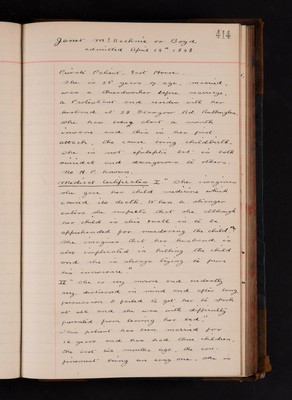 414
Janet McKechnie or Boyd
admitted April 14th 1898
Private Patient. East House.
She is 38 years of age, married,
was a threadworker before marriage,
a Protestant and resides with her
husband at 28 Road Rutherglen
She has been about a month
insane and this is her first
attack, the cause being childbirth.
She is not epileptic but is both
suicidal and dangerous to others.
No H. P. known.
Medical Certificates I "She imagines
she gave her child medicine which
caused its death. When a stranger
enters she suspects that she although
her child is alive & well is to be
apprehended for murdering the child"
She imagines that her husband is
also implicated in killing the child
and she is always trying to prove
his innocence"
II "She is very insane and evidently
very distressed in mind and after long
persuasion I failed to get her to speak
at all and she was with difficulty
prevented from leaving her bed."
This patient has been married for
12 years and has had three children,
the last six months ago, the con-
finement being an easy one. She is